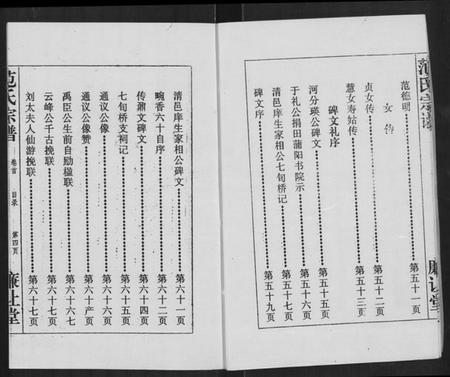 范氏宗谱
廉让堂
范德明……第五十一页
女传
贞女传……第五十二页
慧女寿姑传……第五十三页
碑文礼序
河分瑛公碑文……第五十五页
于礼公捐田蒲阳书院示……第五十六页
清邑庠生家相公七旬桥记……第五十八页
碑文序……第五十九页
清邑庠生家相公碑文……第六十一页
畹香六十自序……第六十二页
传鼐文碑文……第六十四页
七旬桥支祠记……第六十五页
通议公像……第六十六页
通议公像赞……第六十页
禹臣公生前自励楹联……第六十六七
云峰公千古挽联……第六十七页
刘太夫人仙游挽联……第六十七页
范氏宗谱
卷首
目录
第四页
廉让堂